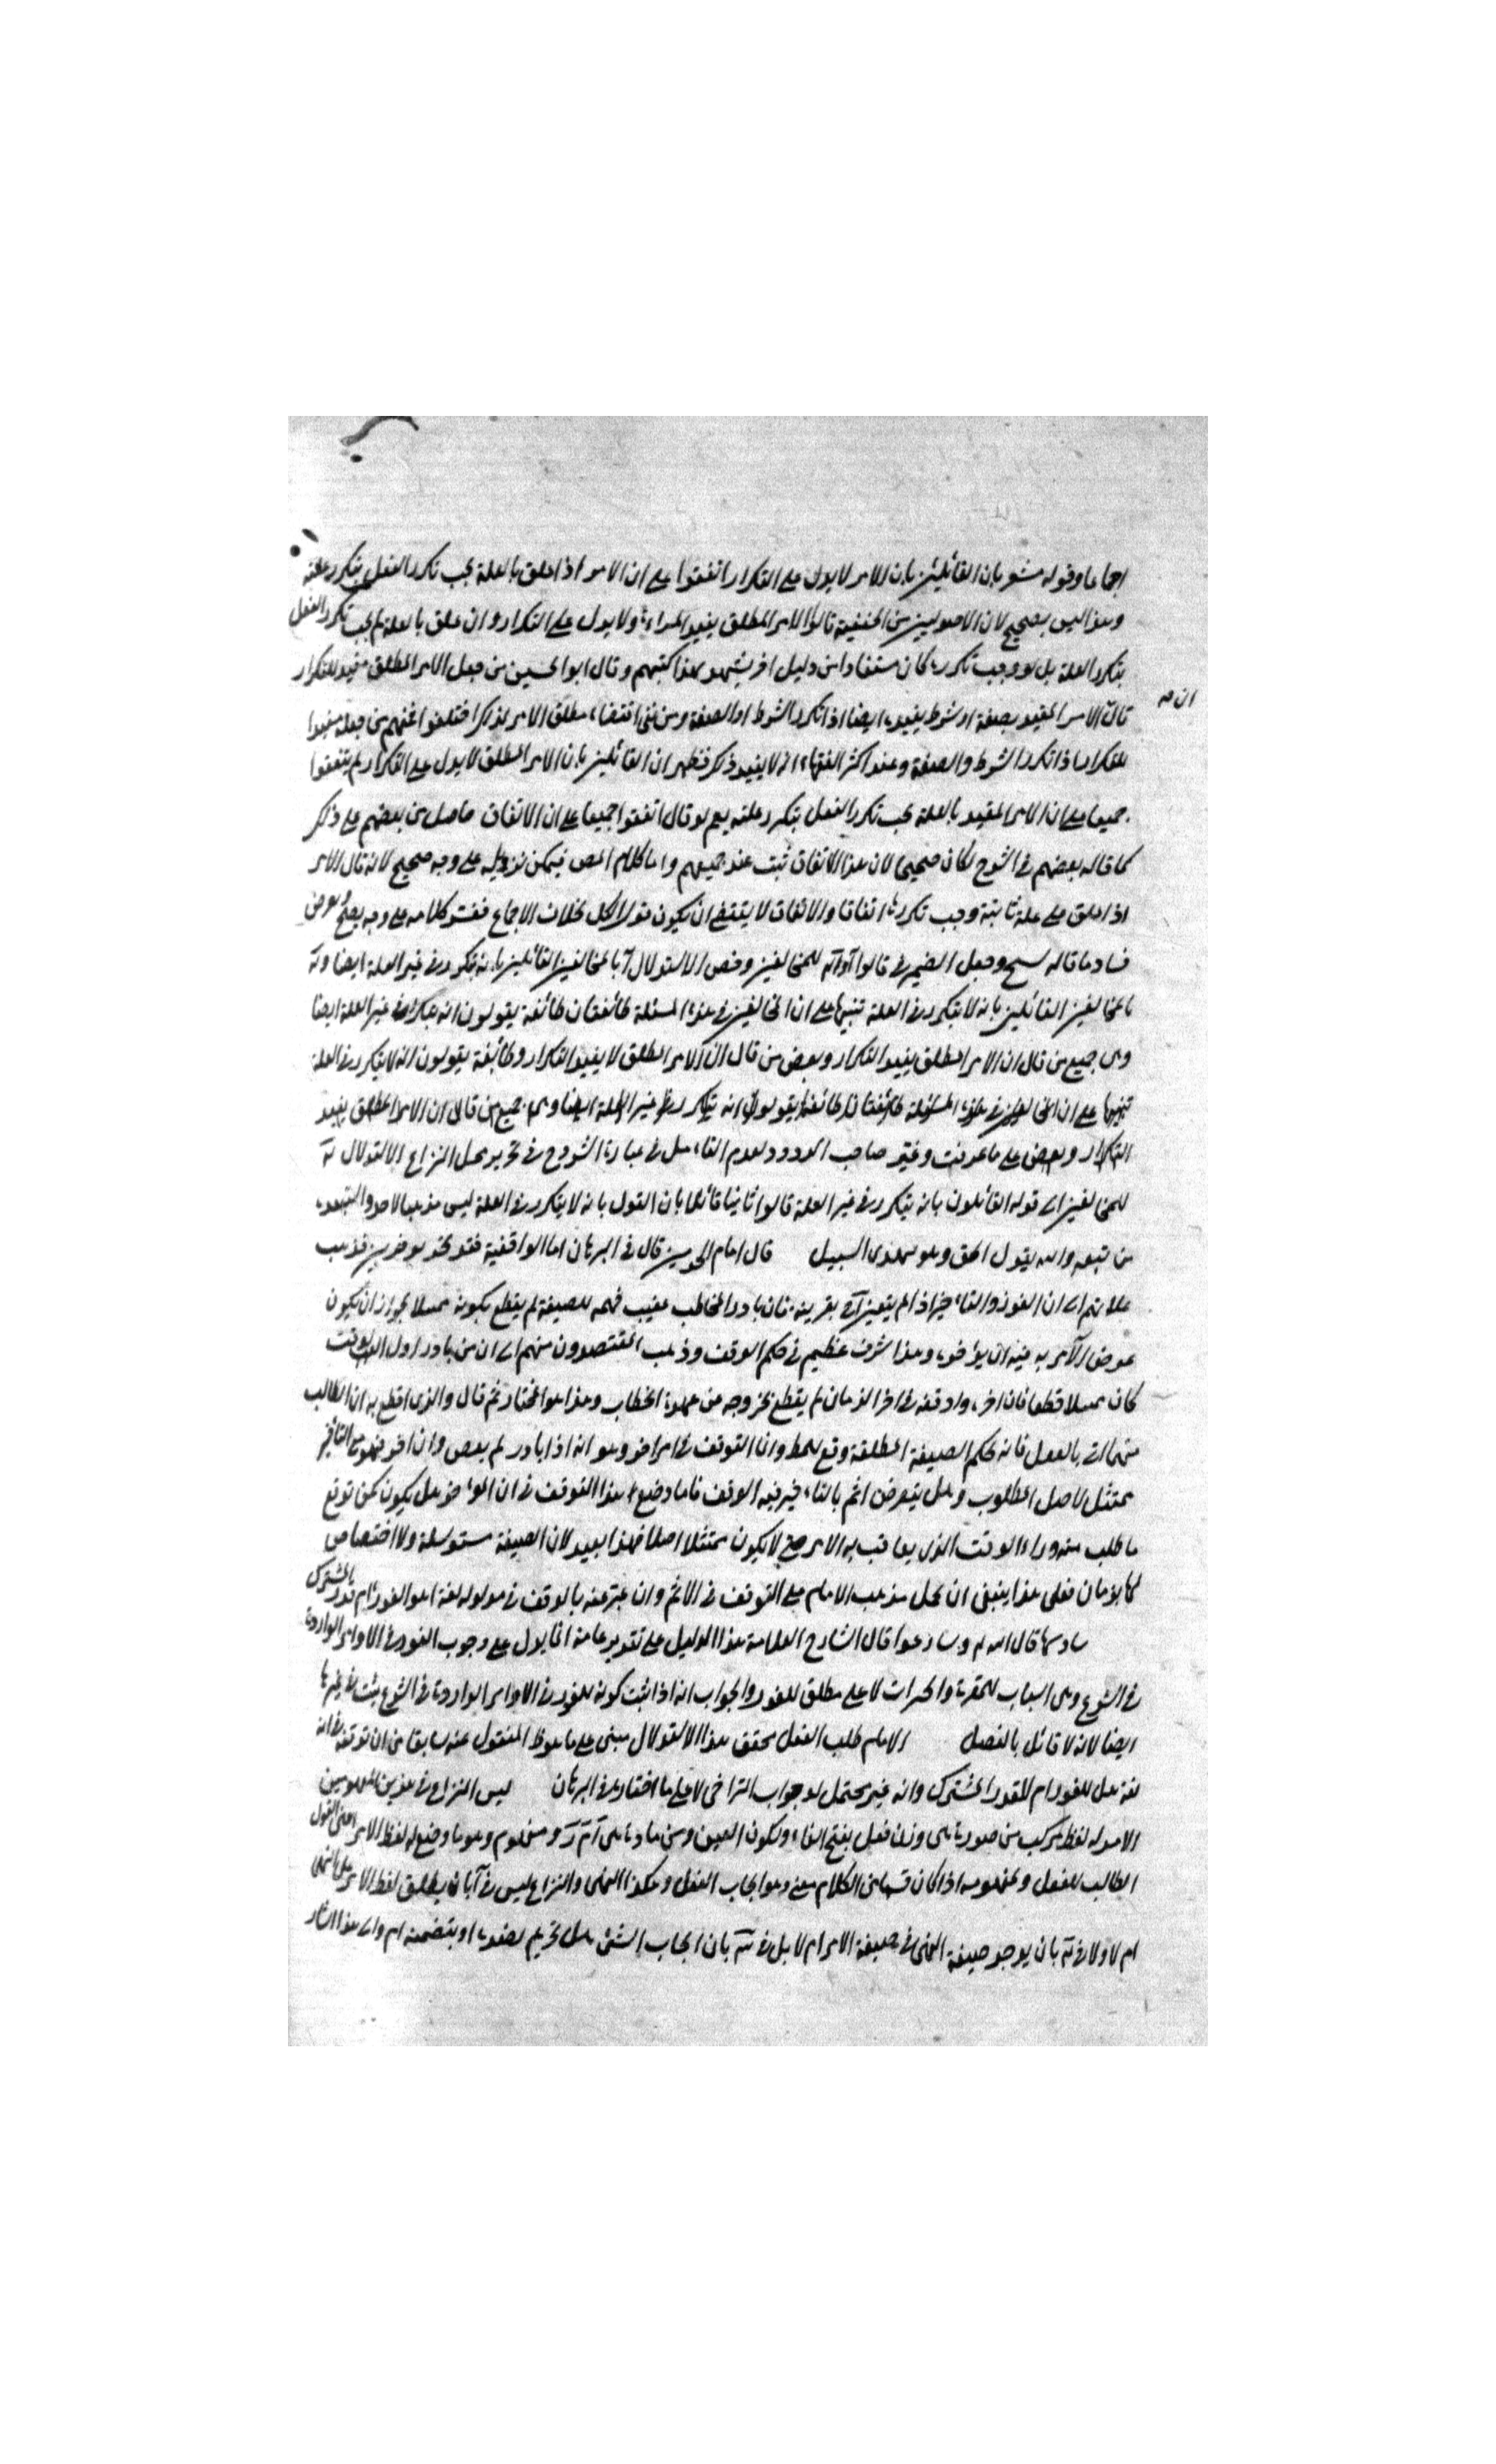 اجماعا وقوله مشعر بان القائلين بان الامر لا يدل على التكرار اتفقوا على ان الامر اذا علق بالعلة يجب تكرر الفعل بتكرر علته
وهذا ليس بصحيح لان الاصوليين من الحنفية قالوا الامر المطلق يفيد المرة ولا يدل على التكرار وان علق بالعلة لم يجب تكرر الفعل
بتكرر العلة بل لو وجب تكرره كان مستفادا من دليل اخر يشهد بهذا كتبهم وقال ابو الحسين من جعل الامر المطلق مفيدا للتكرار
ان
قال الامر المقيد بصفة او شرط يفيده ايضا اذا تكرر الشرط او الصفة ومن نفى اقتضاء مطلق الامر لذلك اختلفوا فمنهم من جعله مفيدا
للتكرار اذا تكرر الشرط والصفة وعند اكثر الفقهاء انه لا يفيد ذلك فظهر ان القائلين بان الامر المطلق لا يدل على التكرار لم يتفقوا
جميعا على ان الامر المقيد بالعلة يجب تكرر الفعل بتكرر علته نعم لو قال اتفقوا جميعا على ان الاتفاق حاصل من بعضهم على ذلك
كما قاله بعضهم في الشرح لكان صحيحا لان هذا الاتفاق ثبت عند جميعهم واما كلام المص فيمكن تنزيله على وجه صحيح لانه قال الامر
اذا علق على علة ثابتة وجب تكرره اتفاقا والاتفاق لا يقتضي ان يكون قول الكل بخلاف الاجماع ففسر كلامه على وجه يصح
فساد ما قاله وجعل الضمير في قالوا للمخالفين وخص الاستدلال بالمخالفين القائلين بانه يتكرر في غير العلة ايضا
بالمخالفين القائلين بانه لا يتكرر في العلة تنبيها على ان المخالفين في هذه المسئلة طائفتان طائفة يقولون انه يتكرر في غير العلة ايضا
وهى جميع من قال ان الامر المطلق يفيد التكرار وبعض من قال ان الامر المطلق لا يفيد التكرار وطائفة يقولون انه لا يتكرر في العلة
تنبيها على ان المخالفين في هذه المسئلة طائفتان طائفة يقولون انه يتكرر في غير العلة ايضا وهى جميع من قال ان الامر المطلق يفيد
التكرار وبعض على ما عرفت وغير صاحب الردود لعدم التامل في عبارة الشروح في تحرير محل النزاع الاستدلال
للمخالفين الى قوله القائلون بانه يتكرر في غير العلة قالوا ثانيا قائلا بان القول بانه لا يتكرر في العلة ليس مذهبا لاحد
من تبعه والله يقول الحق وهو يهدى السبيل قال امام الحرمين قال في البرهان اما الواقفية فقد تحزبوا حزبين فذهب
غلاتهم الى ان الفور والتاخير اذا لم يتعين بقرينة فان بادر المخاطب عقيب فهمه للصيغة لم يقطع بكونه ممتثلا لجواز ان يكون
غرض الآمر به فيه ان يؤخره وهذا شرف عظيم في حكم الوقف وذهب المقتصدون منهم الى ان من بادر اول الوقت
كان ممتثلا قطعا فان اخره واوقعه في اخر الزمان لم يقطع بخروجه من عهدة الخطاب وهذا هو المختار ثم قال والذي اقطع به ان الطالب
مهما اتى بالفعل فانه بحكم الصيغة المطلقة وقع المط وانما التوقف في امر اخر وهو انه اذا بادر لم يعص وان اخر فهو مع التاخير
ممتثل لاصل المطلوب وهل يتعرض للاثم بالتاخير ففيه الوقف فاما وضع هذا التوقف في ان المؤخر هل يكون كمن اوقع
ما طلب منه وراء الوقت الذي يعاقب به الامر حتى لا يكون ممتثلا اصلا فهذا بعيد لان الصيغة مسترسلة ولا اختصاص
لها بزمان فعلى هذا ينبغي ان يحمل مذهب الامام على التوقف في الاثم وان عبر عنه بالوقف في مدلوله لغة اهو الفور ام قدر المشترك
سادسها قال الله تع وسارعوا قال الشارح العلامة هذا الدليل على تقدير تمامه انما يدل على وجوب الفور في الاوامر الواردة
في الشرع وهى اسباب للمغفرة والخيرات لا على مطلق للفور والجواب انه اذا ثبت كونه للفور في الاوامر الواردة في الشرع يثبت في غيرها
ايضا لانه لا قائل بالفصل الامام طلب الفعل محقق هذا الاستدلال مبنى على ما هو ظ المنقول عنه سابقا من ان توقفه في انه
لغة هل للفور ام للقدر المشترك وانه غير محتمل لوجوب التراخى لا على ما اختاره في البرهان ليس النزاع في هذين المفهومين
الامر له لفظ مركب من صورة هى وزن فعل بفتح الفاء وسكون العين ومن مادة هى آ م ر ومفهوم وهو ما وضع له لفظ الامر اعنى القول
الطالب للفعل ولمفهومه اذا كان قسما من الكلام معنى وهو ايجاب الفعل وهكذا النهى والنزاع ليس في بان يطلق لفظ الامر على النهى
ام لا ولا في بان يوجد صيغة النهى في صيغة الامر ام لا بل في بان ايجاب الشئ هل تحريم لضده او يتضمنه ام لا والى هذا اشار